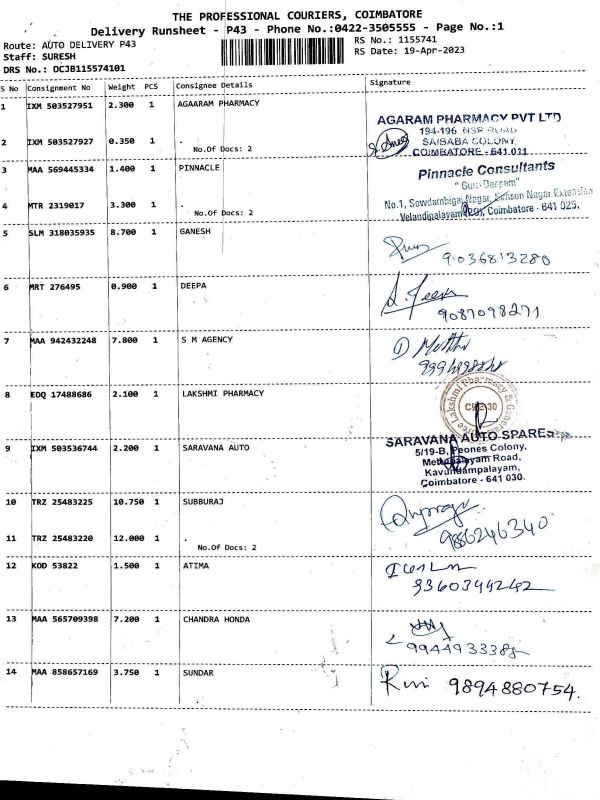 THE PROFESSIONAL COURIERS, COIMBATORE
Delivery Runsheet - P43 - Phone No.:0422-3505555 - Page No.:1
Route: AUTO DELIVERY P43 RS No.: 1155741
Staff: SURESH RS Date: 19-Apr-2023
DRS No.: DCJB115574101
S No Consignment No Weight PCS Consignee Details Signature
1 IXM 503527951 2.300 1 AGAARAM PHARMACY
AGARAM PHARMACY PVT LTD
194-196 NSR ROAD
SAIBABA COLONY
COIMBATORE - 641 011
2 IXM 503527927 0.350 1 .
No.Of Docs: 2
3 MAA 569445334 1.400 1 PINNACLE
Pinnacle Consultants
4 MTR 2319017 3.300 1 .
No.Of Docs: 2
No.1, Sowdambigai Nagar, Simson Nagar Extension
Velandipalayam (PO), Coimbatore - 641 025.
5 SLM 318035935 8.700 1 GANESH
9036813280
6 MRT 276495 0.900 1 DEEPA
9087098271
7 MAA 942432248 7.800 1 S M AGENCY
8 EDQ 17488686 2.100 1 LAKSHMI PHARMACY
Lakshmi Pharmacy & General
CBE 30
9 IXM 503536744 2.200 1 SARAVANA AUTO
SARAVANA AUTO SPARES
5/19-B, Peones Colony,
Mettupalayam Road,
Kavundampalayam,
Coimbatore - 641 030.
10 TRZ 25483225 10.750 1 SUBBURAJ
11 TRZ 25483220 12.000 1 .
No.Of Docs: 2
9886246340
12 KOD 53822 1.500 1 ATIMA
9360399242
13 MAA 565709398 7.200 1 CHANDRA HONDA
9944933388
14 MAA 858657169 3.750 1 SUNDAR
9894880754.